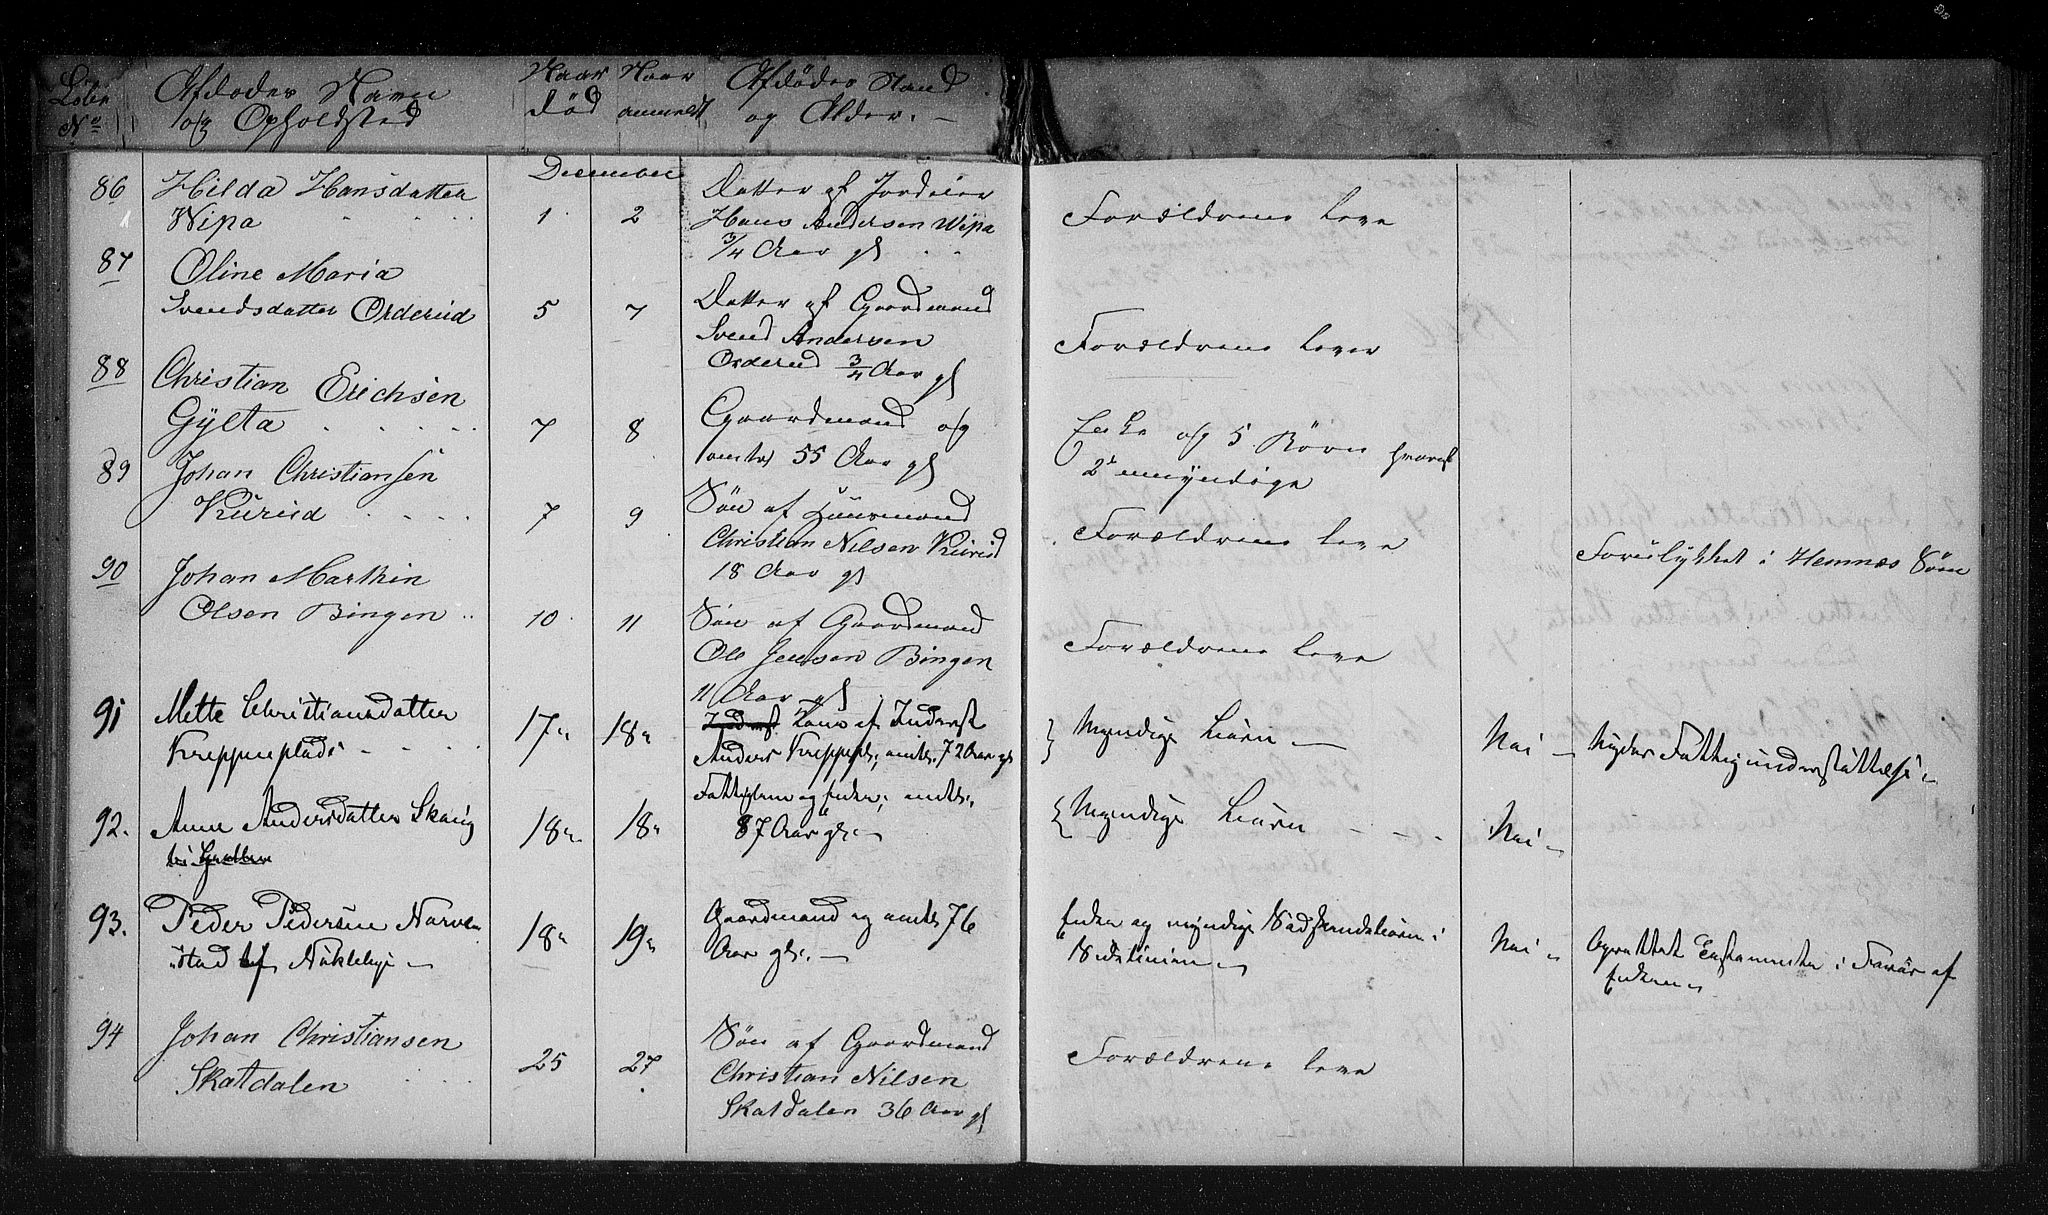 Løbe No
Afdødes Navn og Opholdsted
Naar død
Naar anmeldt
Afdødes Stand og Alder. —
December
86 Hilda Hansdatter
Wipa
1 2
Datter af Jordeier
Hans Andersen Wipa
3/4 Aar gl
Forældrene leve
87 Oline Maria
Svendsdatter Orderud
5 7
Datter af Gaardmand
Svend Andersen
Orderud 3/4 Aar gl
Forældrene lever
88 Christian Erichsen
Gylta
7 8
Gaardmand og
omtr 55 Aar gl
Enke og 5 Børn hvoraf
2 umyndige
89 Johan Christiansen
Kurud
7 9
Søn af Huusmand
Christian Nilsen Kurud
18 Aar gl
Forældrene leve
Forulykket i Hemnæs Søen
90 Johan Marthin
Olsen Bingen
10 11
Søn af Gaardmand
Ole Jensen Bingen
11 Aar gl
Forældrene leve
91 Mette Christiansdatter
Kreppenplads
17 18
Inderst Kone af Inderst
Anders Kreppepl; omtr. 72 Aar gl
Myndige Børn —
Nei
Nyder Fattigunderstøttelse
92. Anne Andersdatter Skaug
18 18
Fattiglem og Enke; omtr.
87 Aar gl. —
Myndige Børn
Nei
93. Peder Pedersen Narve-
stad Nükleby —
18 19
Gaardmand og omtr. 76
Aar gl. —
Enke og myndige Sødskendebørn i
Sidelinien
Nei
Oprettet Testamente i Favør af
Enken
94 Johan Christiansen
Skatdalen
25 27
Søn af Gaardmand
Christian Nilsen
Skatdalen 36 Aar gl
Forældrene leve